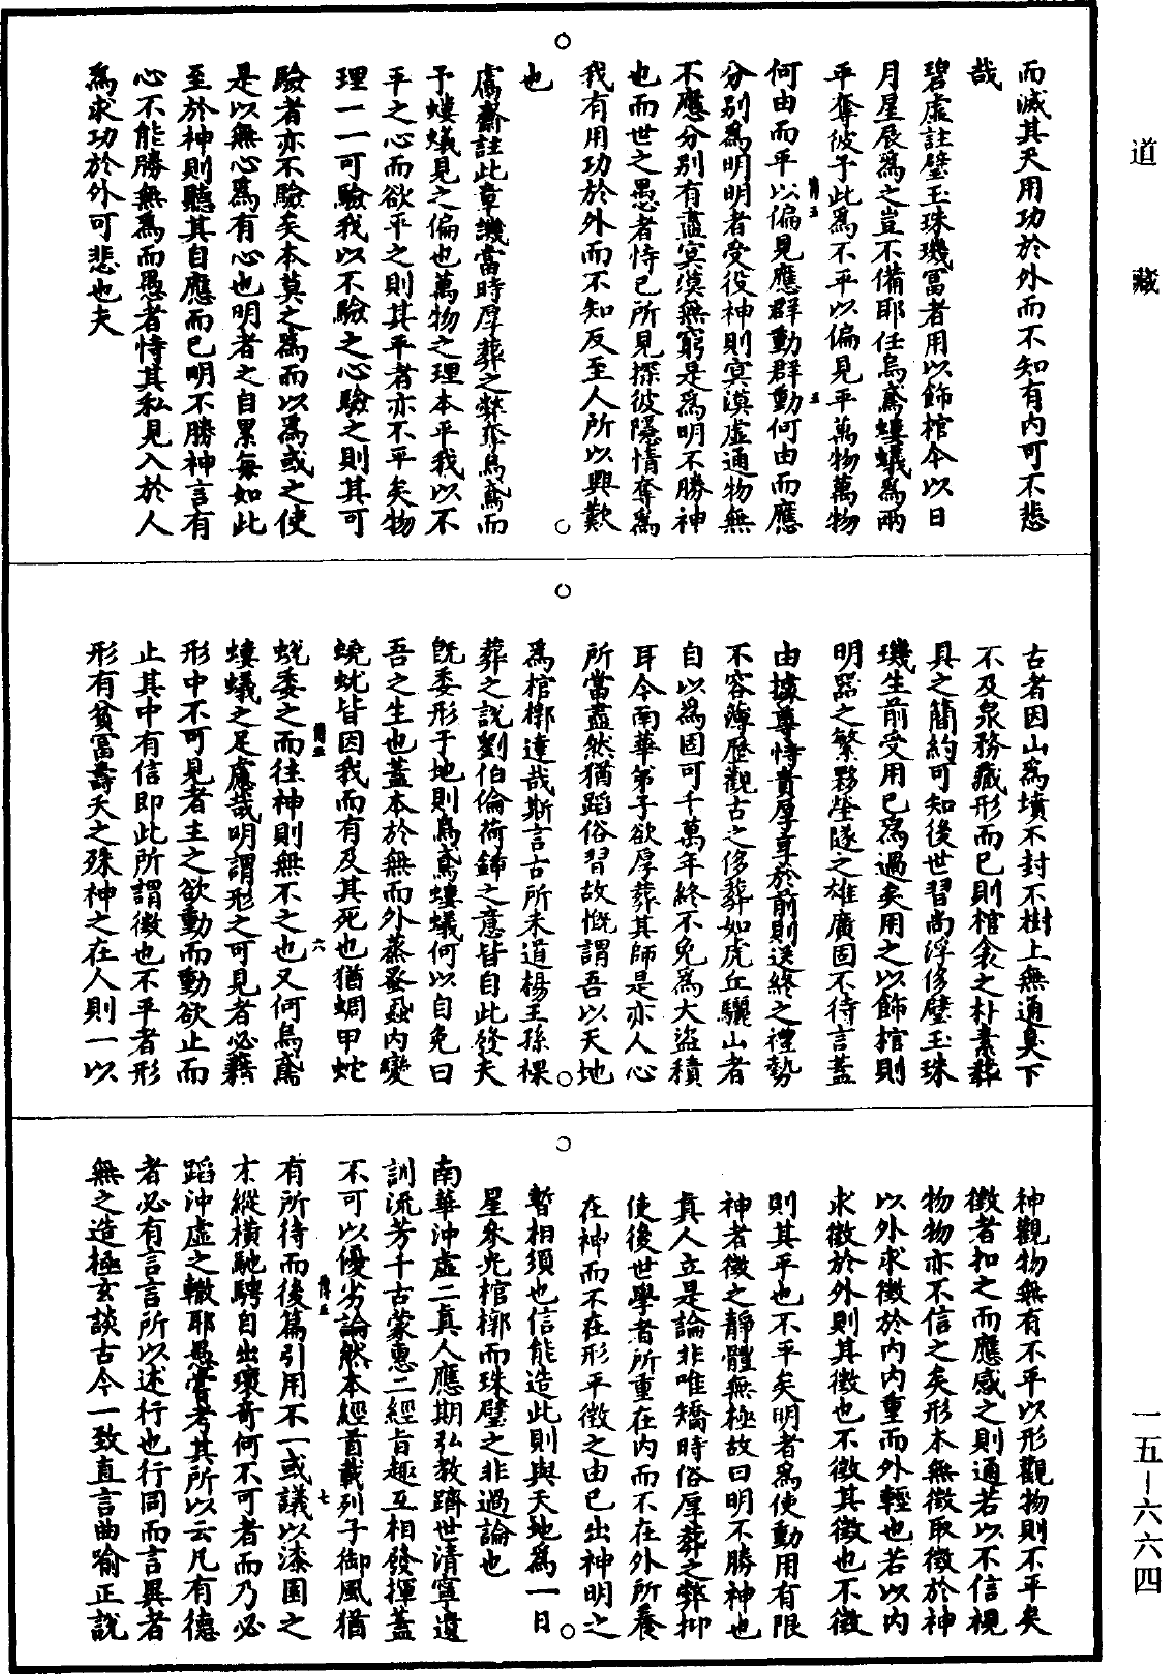 而滅其天用功於外而不知有内可不悲
哉
碧虛註璧玉珠璣冨者用以飾棺今以日
月星辰爲之豈不備耶任烏鳶螻蟻爲兩
平奪彼予此爲不平以偏見平萬物萬物
何由而平以偏見應群動群動何由而應
分别爲明明者受役神則㝠漠虛通物無
不應分别有盡㝠漠無窮是爲明不勝神
也而世之愚者恃已所見探彼隱情奪爲
我有用功於外而不知反至人所以興歎
也
鬳齋註此章譏當時厚葬之弊奪烏鳶而
予螻蟻見之偏也萬物之理本平我以不
平之心而欲平之則其平者亦不平矣物
理一一可驗我以不驗之心驗之則其可
驗者亦不驗矣本莫之爲而以爲或之使
是以無心爲有心也明者之自累每如此
至於神則聽其自應而已明不勝神言有
心不能勝無爲而愚者恃其私見入於人
爲求功於外可悲也夫
古者因山爲墳不封不樹上無通臭下
不及泉務藏形而已則棺衾之朴素葬
具之簡約可知後世習尚浮侈璧玉珠
璣生前受用已爲過矣用之以飾棺則
明器之繁夥塋隧之雄廣固不待言蓋
由據尊恃貴厚享於前則送終之禮勢
不容薄歷觀古之侈葬如虎丘驪山者
自以爲固可千萬年終不免爲大盜積
耳今南華弟子欲厚葬其師是亦人心
所當盡然猶蹈俗習故慨謂吾以天地
爲棺槨達哉斯言古所未道楊王孫倮
葬之說劉伯倫荷鍤之意皆自此發夫
既委形于地則烏鳶螻蟻何以自免曰
吾之生也蓋本於無而外蒸蚤蝨内變
蟯蚘皆因我而有及其死也猶蜩甲蛇
蛻委之而往神則無不之也又何烏鳶
螻蟻之足慮哉明謂形之可見者必藉
形中不可見者主之欲動而動欲止而
止其中有信即此所謂徵也不平者形
形有貧冨壽夭之殊神之在人則一以
神觀物無有不平以形觀物則不平矣
徵者扣之而應感之則通若以不信視
物物亦不信之矣形本無徵取徵於神
以外求徵於内内重而外輕也若以内
求徵於外則其徵也不徵其徵也不徵
則其平也不平矣明者爲使動用有限
神者徵之靜體無極故曰明不勝神也
真人立是論非唯矯時俗厚葬之弊抑
使後世學者所重在内而不在外所養
在神而不在形平徵之由已出神明之
暫相須也信能造此則與天地爲一日
星來光棺槨而珠璧之非過論也
南華沖虛二真人應期弘教躋世清寧遺
訓流芳千古蒙惠二經旨趣互相發揮蓋
不可以優劣論然本經首載列子御風猶
有所待而後篇引用不一或議以漆園之
才縱橫馳騁自出瓌竒何不可者而乃必
蹈沖虛之轍耶愚嘗考其所以云凡有德
者必有言言所以述行也行同而言異者
無之造極玄談古今一致直言曲喻正說
道藏
一五—六六四